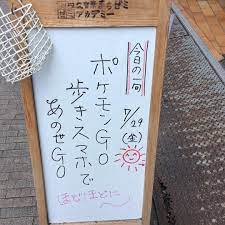 アカデミー
今日の一句
7/29(金)
ポケモンGO
歩きスマホで
あのせGO
ほどほどに